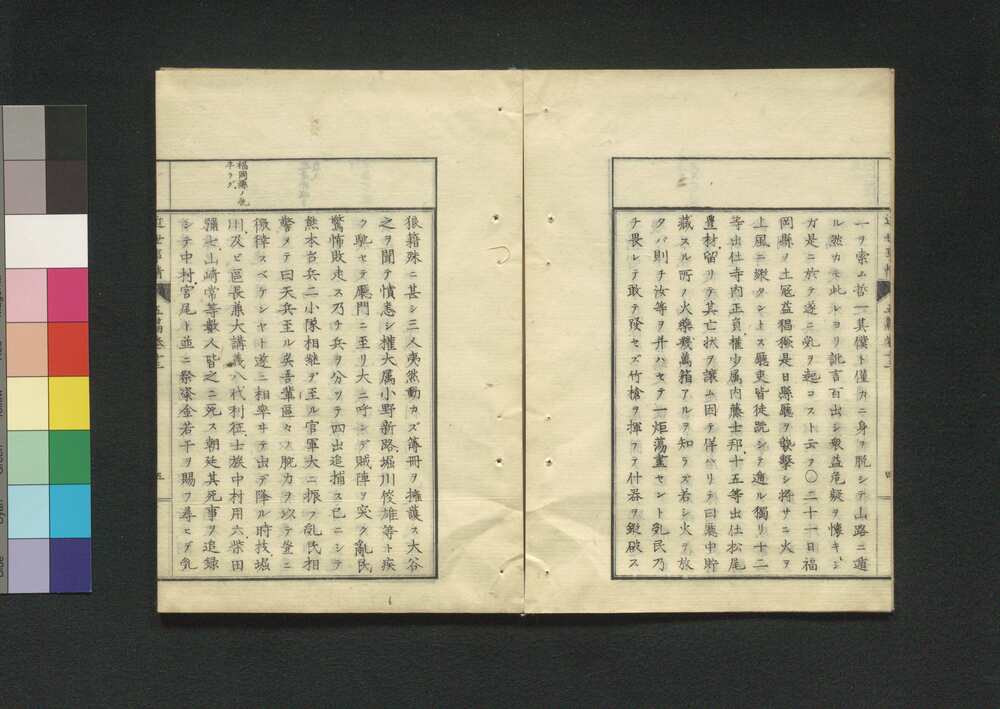 一ヲ索ム哲一其僕ト僅カニ身ヲ脱シテ山路ニ遁
ル然カモ此レヨリ訛言百出シ衆益危疑ヲ懷キ
ガ是ニ於テ遂ニ乱ヲ起コスト云フ〇二十一日福
岡縣ノ土冦益猖獗是日縣廳ヲ襲擊シ將サニ火ヲ
上風ニ縦タントス廳吏皆徒跣シテ遁ル獨リ十二
等出仕寺内正員權少属内藤士邦十五等出仕松尾
豊材留リテ其亡状ヲ譲ム因テ佯ハリテ曰廳中貯
藏スル所ノ火藥幾萬箱アルヲ知ラズ若シ火ヲ放
タバ則チ汝等ヲ并ハセテ一炬蕩盡セント乱民乃
チ畏レテ敢テ發セズ竹槍ヲ揮フテ什器ヲ鏦破ス
四
福岡縣ノ乱
平ラグ
狼籍殊ニ甚シ三人夷然動カズ簿冊ヲ擁護ス大谷
之ヲ聞テ憤恚シ權大属小野新路堀川俊雄等ト疾
ク馳セテ廳門ニ至リ大ニ呼ンデ賊陣ヲ突ク亂民
驚怖敗走ス乃チ兵ヲ分ツテ四出追捕ス已ニシテ
熊本台兵二小隊相継デ至ル官軍大ニ振フ乱民相
警メテ曰天兵至ル矣吾輩區々ノ脱力ヲ以テ豈ニ
徼倖スベケンヤト遂ニ相率ヰテ出デ降ル時技堀
川及ビ區長兼大講義八代利征士族中村用六柴田
彌七山崎常等數人皆之ニ死ス朝廷其死事ヲ追録
シテ中村宮尾ト並ニ祭粢金若干ヲ賜フ尋ヒデ乱
五